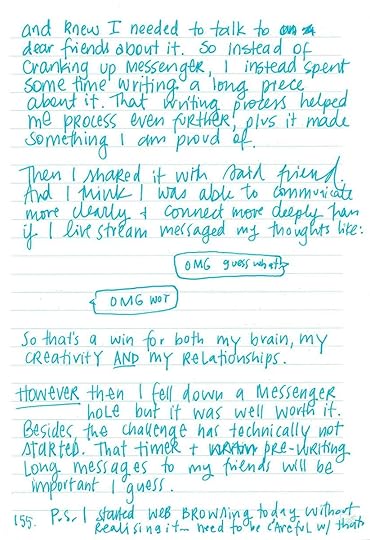 and knew I needed to talk to a
dear friend about it. So instead of
cranking up messenger, I instead spent
some time writing a long piece
about it. That writing process helped
me process even further, plus it made
something I am proud of.
Then I shared it with said friend.
And I think I was able to communicate
more clearly + connect more deeply than
if I live stream messaged my thoughts like:
OMG guess what
OMG WOT
So that's a win for both my brain, my
creativity AND my relationships.
HOWEVER then I fell down a messenger
hole but it was well worth it.
Besides, the challenge has technically not
started. That timer + pre-writing
long messages to my friends will be
important I guess.
155. P.S. I started web browsing today without
realising it – need to be careful w/ that